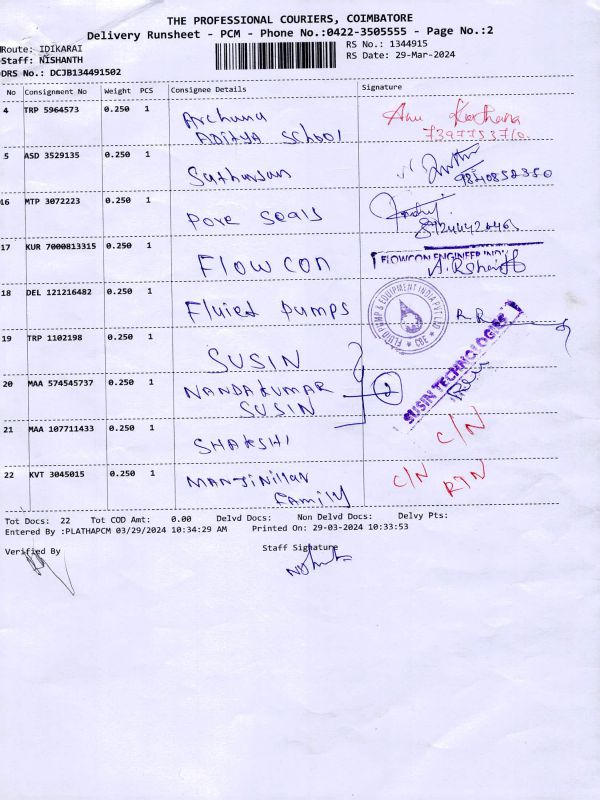 THE PROFESSIONAL COURIERS, COIMBATORE
Delivery Runsheet - PCM - Phone No.:0422-3505555 - Page No.:2
Route: IDIKARAI
RS No.: 1344915
Staff: NISHANTH
RS Date: 29-Mar-2024
DRS No.: DCJB134491502
No Consignment No Weight PCS Consignee Details Signature
4 TRP 5964573 0.250 1 Archana
ADITYA School
7397753710
5 ASD 3529135 0.250 1 Sathursan
9840852350
16 MTP 3072223 0.250 1 Pore Seals
17 KUR 7000813315 0.250 1 Flowcon FLOWCON ENGINEER INDIA
18 DEL 121216482 0.250 1 Fluied Pumps FLUID PUMP & EQUIPMENT INDIA PVT LTD CBE
19 TRP 1102198 0.250 1 SUSIN
SUSIN TECHNOLOGIES
20 MAA 574545737 0.250 1 NANDAKUMAR 2
SUSIN
21 MAA 107711433 0.250 1 SHAKSHI C/N
22 KVT 3045015 0.250 1 MANJiNillan C/N RTN
Family
Tot Docs: 22 Tot COD Amt: 0.00 Delvd Docs: Non Delvd Docs: Delvy Pts:
Entered By :PLATHAPCM 03/29/2024 10:34:29 AM Printed On: 29-03-2024 10:33:53
Verified By Staff Signature